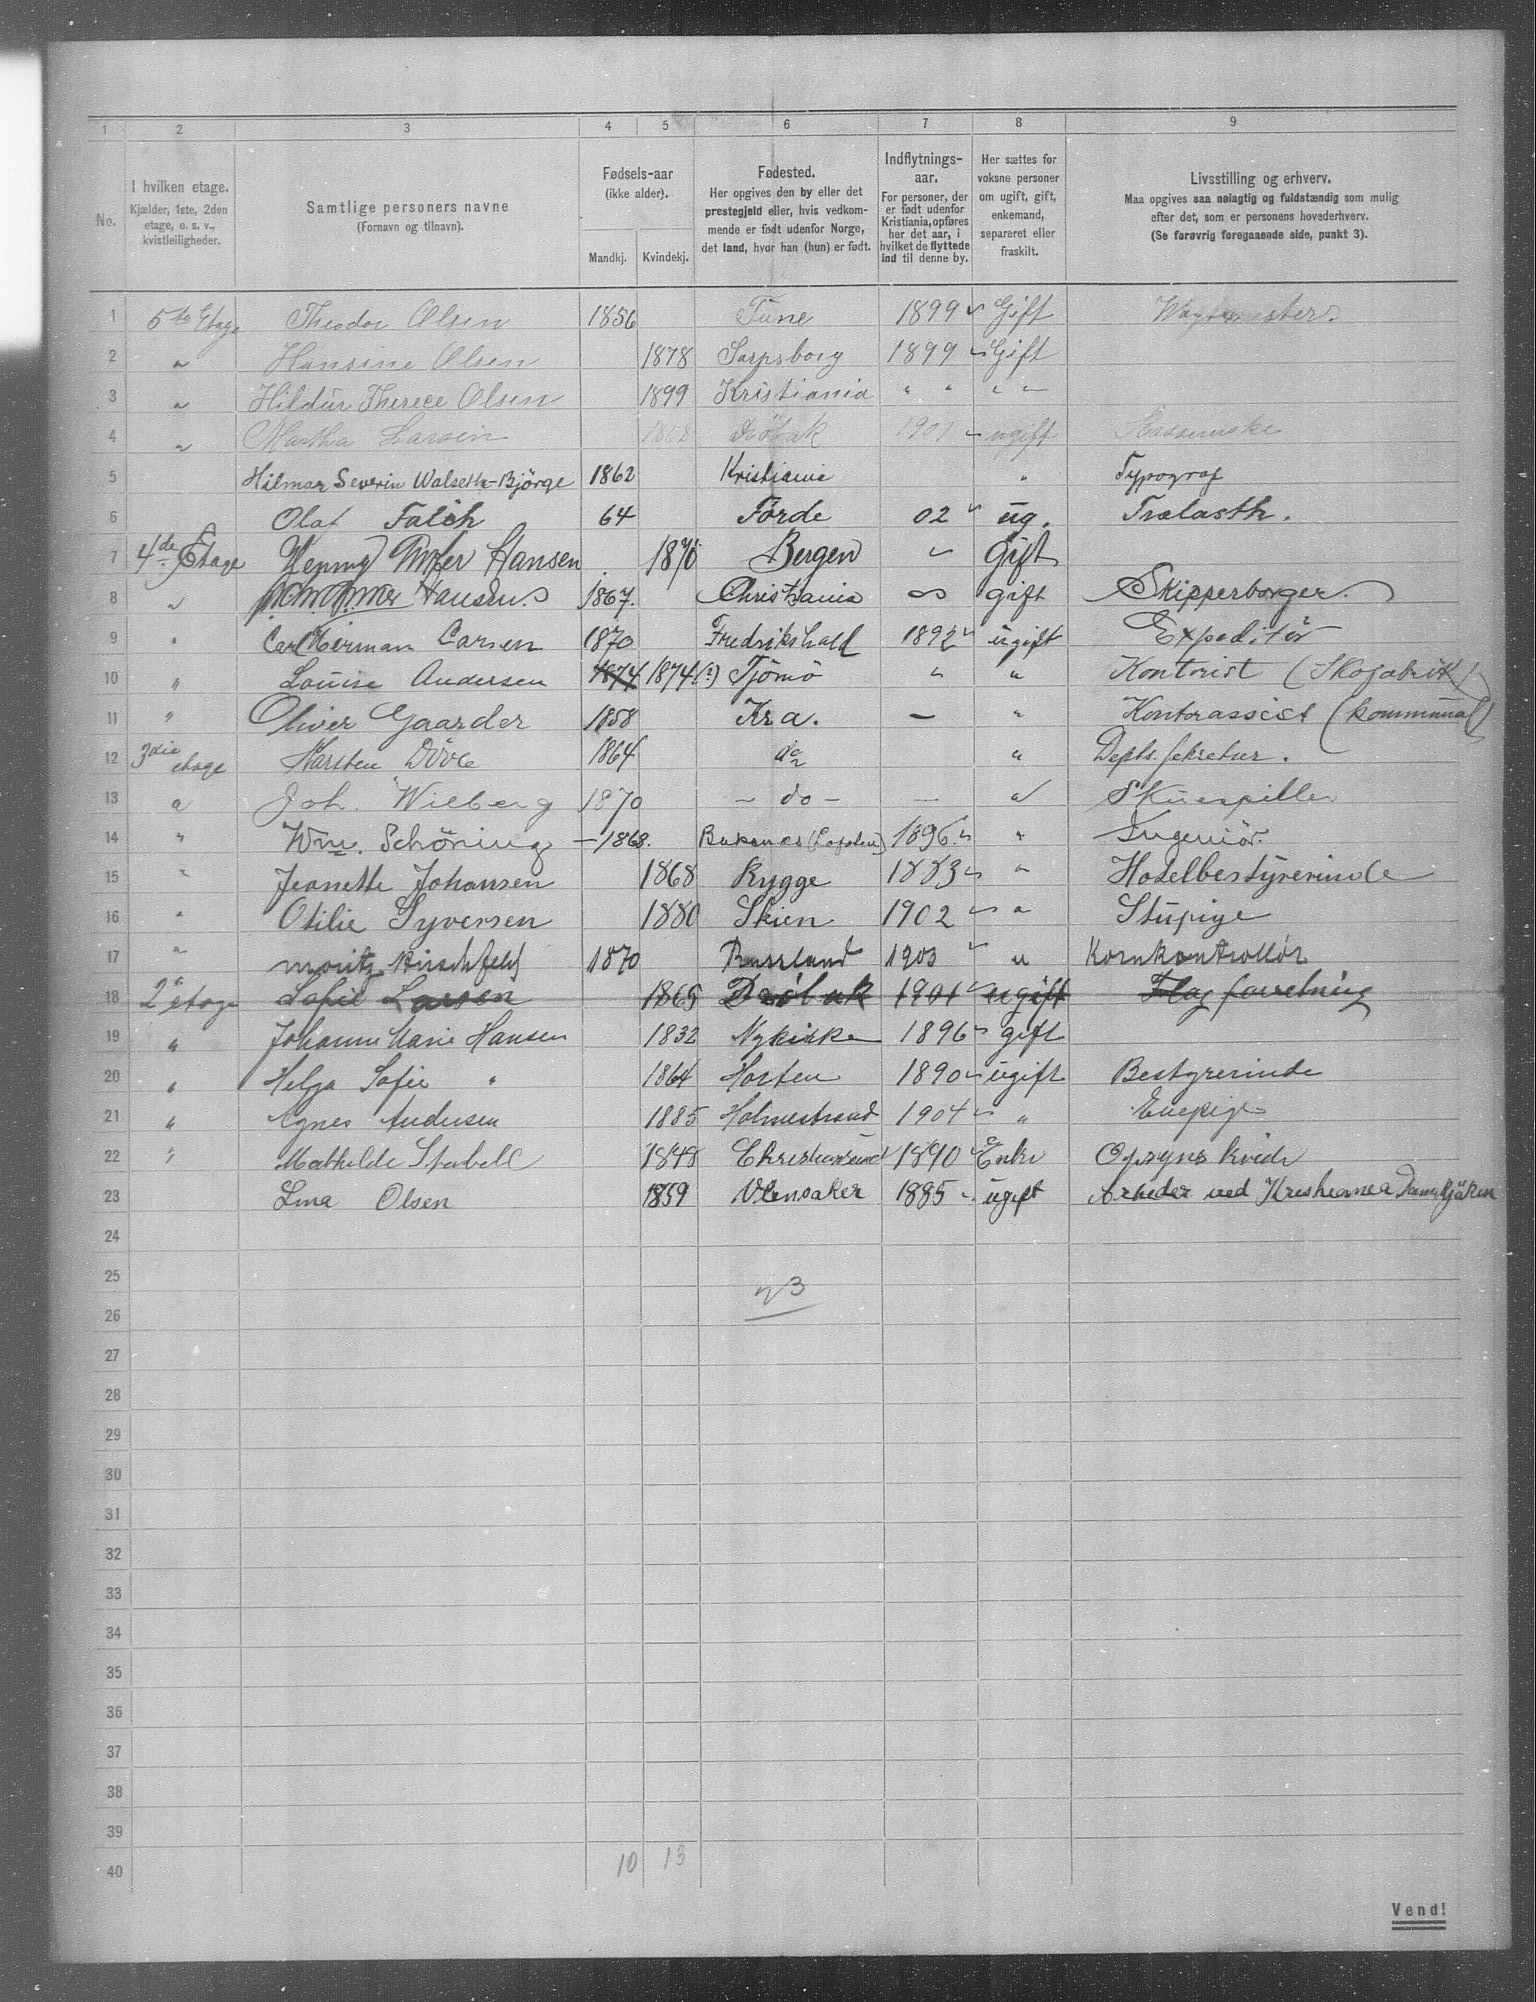 1 2 3 4 5 6 7 8 9
No.
I hvilken etage.
Kjælder, 1ste, 2den
etage, o. s. v.,
kvistleiligheder.
Samtlige personers navne
(Fornavn og tilnavn).
Fødsels-aar
(ikke alder).
Mandkj. Kvindekj.
Fødested.
Her opgives den by eller det
prestegjeld eller, hvis vedkom-
mende er født udenfor Norge,
det land, hvor han (hun) er født.
Indflytnings-
aar.
For personer, der
er født udenfor
Kristiania, opføres
her det aar, i
hvilket de flyttede
ind til denne by.
Her sættes for
voksne personer
om ugift, gift,
enkemand,
separeret eller
fraskilt.
Livsstilling og erhverv.
Maa opgives saa nøiagtig og fuldstændig som mulig
efter det, som er personens hovederhverv.
(Se forøvrig foregaaende side, punkt 3).
1 5te Etage Theodor Olsen 1856 Tune 1899 Gift
2 " Hansine Olsen 1878 Sarpsborg 1899 Gift
3 " Hildur Therece Olsen 1899 Kristiania " " " "
4 " Martha Larsen Dröbak 1901 ugift
5 Hilmar Severin Walseth-Björge 1862 Kristiania " Typograf
6 Olaf Falch 64 Förde 02 ug. Trælasth.
7 4de Etage Henny Hansen 1870 Bergen " Gift
8 " Hansen 1867. Christiania gift Skipperborger.
9 " Carl Herman Larsen 1870 Fredrikshald 1892 ugift Expeditör
10 " Louise Andersen 1874 1874 (?) Tjömö " " Kontorist (Skofabrik)
11 " Oliver Gaarder 1858 Kra. — " Kontorassist (kommunal)
12 3die etage Karsten Döve 1864 do " Depts. sekretær.
13 " Joh. Wiberg 1870 – do – — " Skuespiller
14 " Wm. Schöning – 1868. Buksnes (Lofoten) 1896. " Ingeniör.
15 " Jeanette Johansen 1868 Rygge 1883 " Hotelbestyrerinde
16 " Otilie Syversen 1880 Skien 1902 " Stupige
17 " Moritz Hirschfeld 1870 Russland 1903 " Kornkontrollör
18 2d etage Sofie Larsen 1865 Dröbak 1901 ugift Flag forretning
19 " Johanne Marie Hansen 1832 Nykirke 1896 gift
20 " Helga Sofie " 1864 Horten 1890 ugift Bestyrerinde
21 " Agnes Andersen 1885 Holmestrand 1904 " Enepige
22 " Mathilde Stabell 1848 Christiansund 1890 Enke Opsyns kvide
23 Lina Olsen 1859 Ulensaker 1885 ugift Arbeder ved Kristiania Dampkjöken
24
25
23
26
27
28
29
30
31
32
33
34
35
36
37
38
39
40 10 13
Vend!